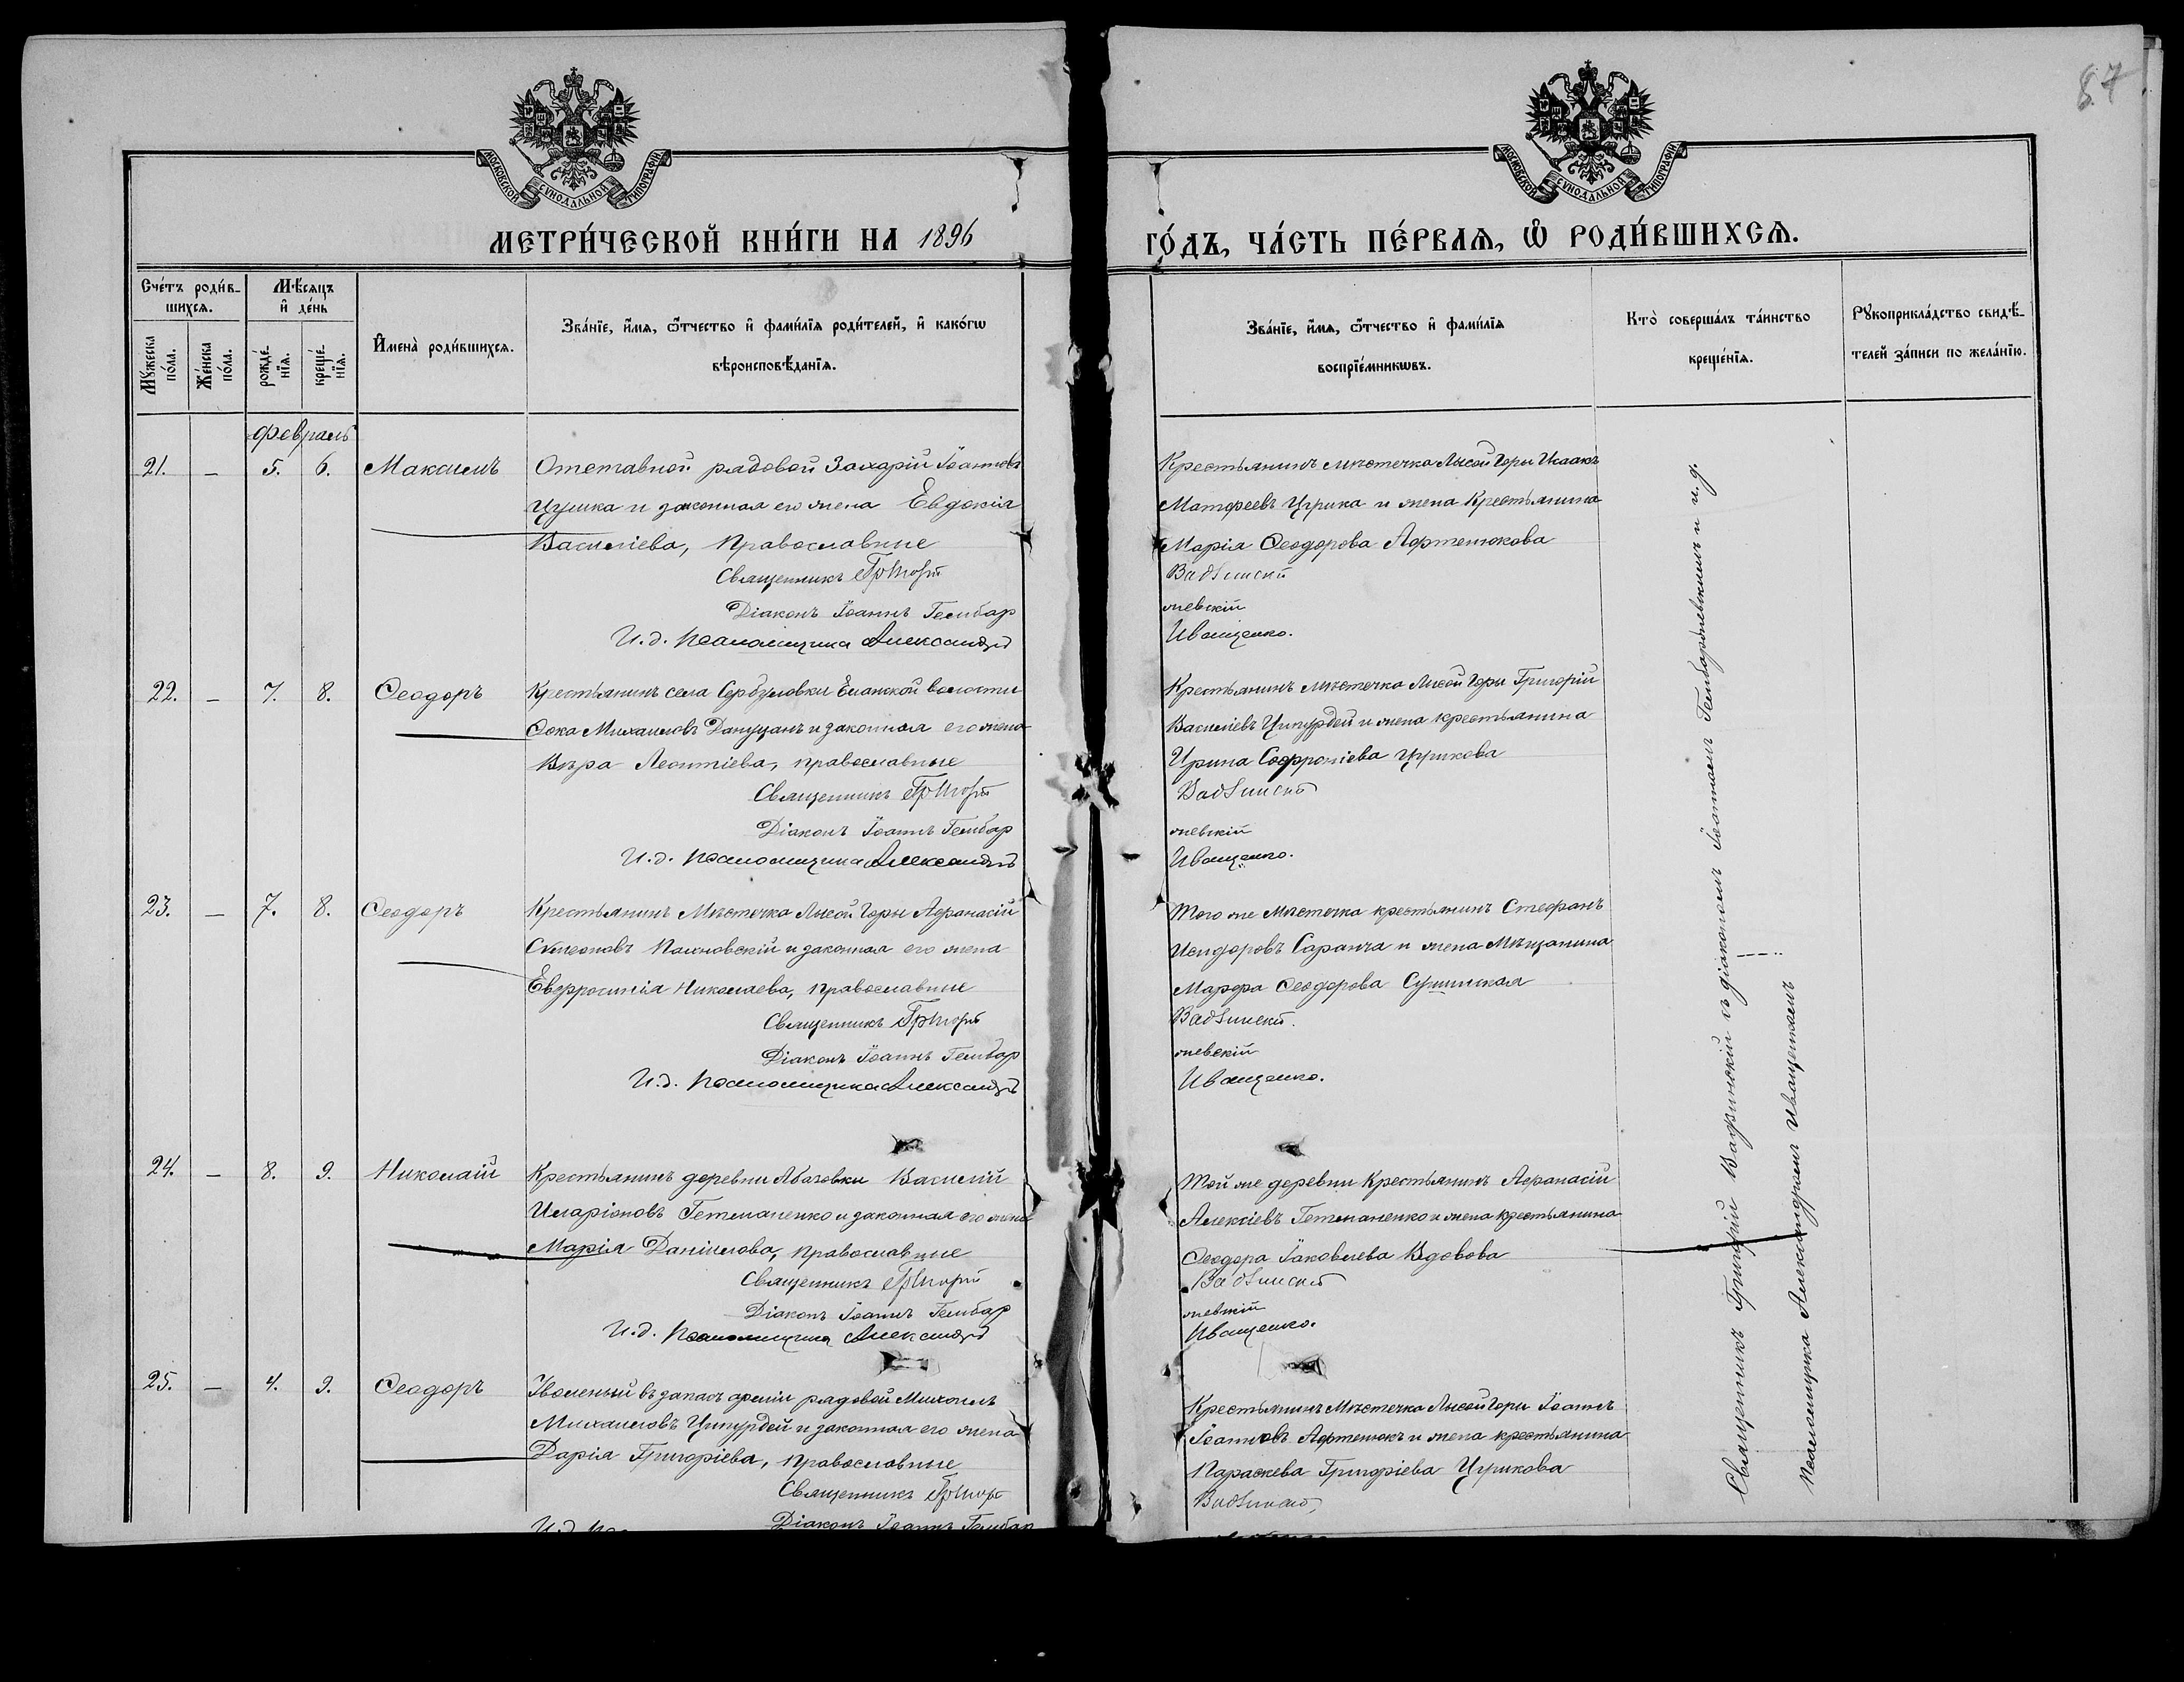 87
МОСКОВСКОЙ СѴНОДАЛЬНОЙ ТИПОГРАФІИ
МОСКОВСКОЙ СѴНОДАЛЬНОЙ ТИПОГРАФІИ
МЕТРИ́ЧЕСКОЙ КНИ́ГИ НА 1896
ГО́ДЪ, ЧА́СТЬ ПЕ́РВАѦ, Ѡ҆ РОДИ́ВШИХСѦ.
Сче́тъ роди́в-
шихсѧ.
Мꙋ́жеска по́ла.
Же́нска по́ла.
Мѣ́сѧцъ
и҆ де́нь
рожде́-
нїѧ.
креще́-
нїѧ.
И҆мена̀ роди́вшихсѧ.
Зва́нїе, и҆́мѧ, ѻ҆́тчество и҆ фами́лїѧ роди́телей, и҆ како́гѡ
вѣроисповѣ́данїѧ.
Зва́нїе, и҆́мѧ, ѻ҆́тчество и҆ фами́лїѧ
воспрїе́мникѡвъ.
Кто̀ соверша́лъ та́инство
креще́нїѧ.
Рꙋкоприкла́дство свидѣ́-
телей за́писи по жела́нїю.
Февраль
21. — 5. 6. Максимъ
Отставной рядовой Захарій Іоанновъ
Цушка и законная его жена Евдокія
Василіева, православные
Священникъ Григорій
Діаконъ Іоаннъ Гембар
И.д. псаломщика Александръ
Крестьянинъ мѣстечка Лысой Горы Исаакъ
Матфеевъ Цурика и жена крестьянина
Марія Ѳеодорова Афтенюкова
Вадзинскій
жевскій
Иващенко.
22. — 7. 8. Ѳеодоръ
Крестьянинъ села Сербуловки Еланской волости
Ѳока Михаиловъ Дануцанъ и законная его жена
Вѣра Леонтіева, православные
Священникъ Григорій
Діаконъ Іоаннъ Гембар
И.д. псаломщика Александръ
Крестьянинъ мѣстечка Лысой Горы Григорій
Василіевъ Ципурдей и жена крестьянина
Ирина Софроніева Цурикова
Вадзинскій
жевскій
Иващенко.
23. — 7. 8. Ѳеодоръ
Крестьянинъ мѣстечка Лысой Горы Афанасій
Сѵмеоновъ Малиновскій и законная его жена
Евфросинія Николаева, православные
Священникъ Григорій
Діаконъ Іоаннъ Гембар
И.д. псаломщика Александръ
Того же мѣстечка крестьянинъ Стефанъ
Исидоровъ Саранча и жена мѣщанина
Марфа Ѳеодорова Сушинская
Вадзинскій.
жевскій
Иващенко.
24. — 8. 9. Николай
Крестьянинъ деревни Абазовки Василій
Иларіоновъ Гетманенко и законная его жена
Марія Даніилова, православные
Священникъ Григорій
Діаконъ Іоаннъ Гембар
И.д. псаломщика Александръ
Той же деревни крестьянинъ Афанасій
Алексіевъ Гетманенко и жена крестьянина
Ѳеодора Іаковлева Вдовова
Вадзинскій
жевскій
Иващенко.
25. — 4. 9. Ѳеодоръ
Уволенный въ запасъ арміи рядовой Михаилъ
Михаиловъ Ципурдей и законная его жена
Дарія Григоріева, православные
Священникъ Григорій
Діаконъ Іоаннъ Гембар
Крестьянинъ мѣстечка Лысой Горы Іоаннъ
Іоанновъ Афтенюкъ и жена крестьянина
Параскева Григоріева Цурикова
Вадзинскій
Священникъ Григорій Вадзинскій съ діакономъ Іоанномъ Гембаржевскимъ и и.д.
псаломщика Александромъ Иващенкомъ